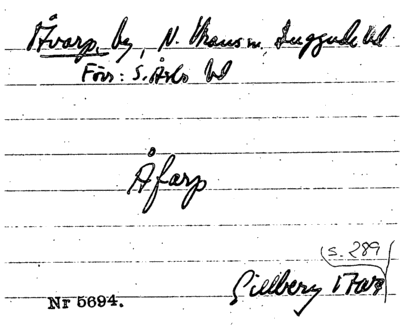 Åvarp, by, N. Vram sn, Luggude hd
Förr: S. Åsbo hd
Åfarp
s. 289
Gillberg
Nr 5694.